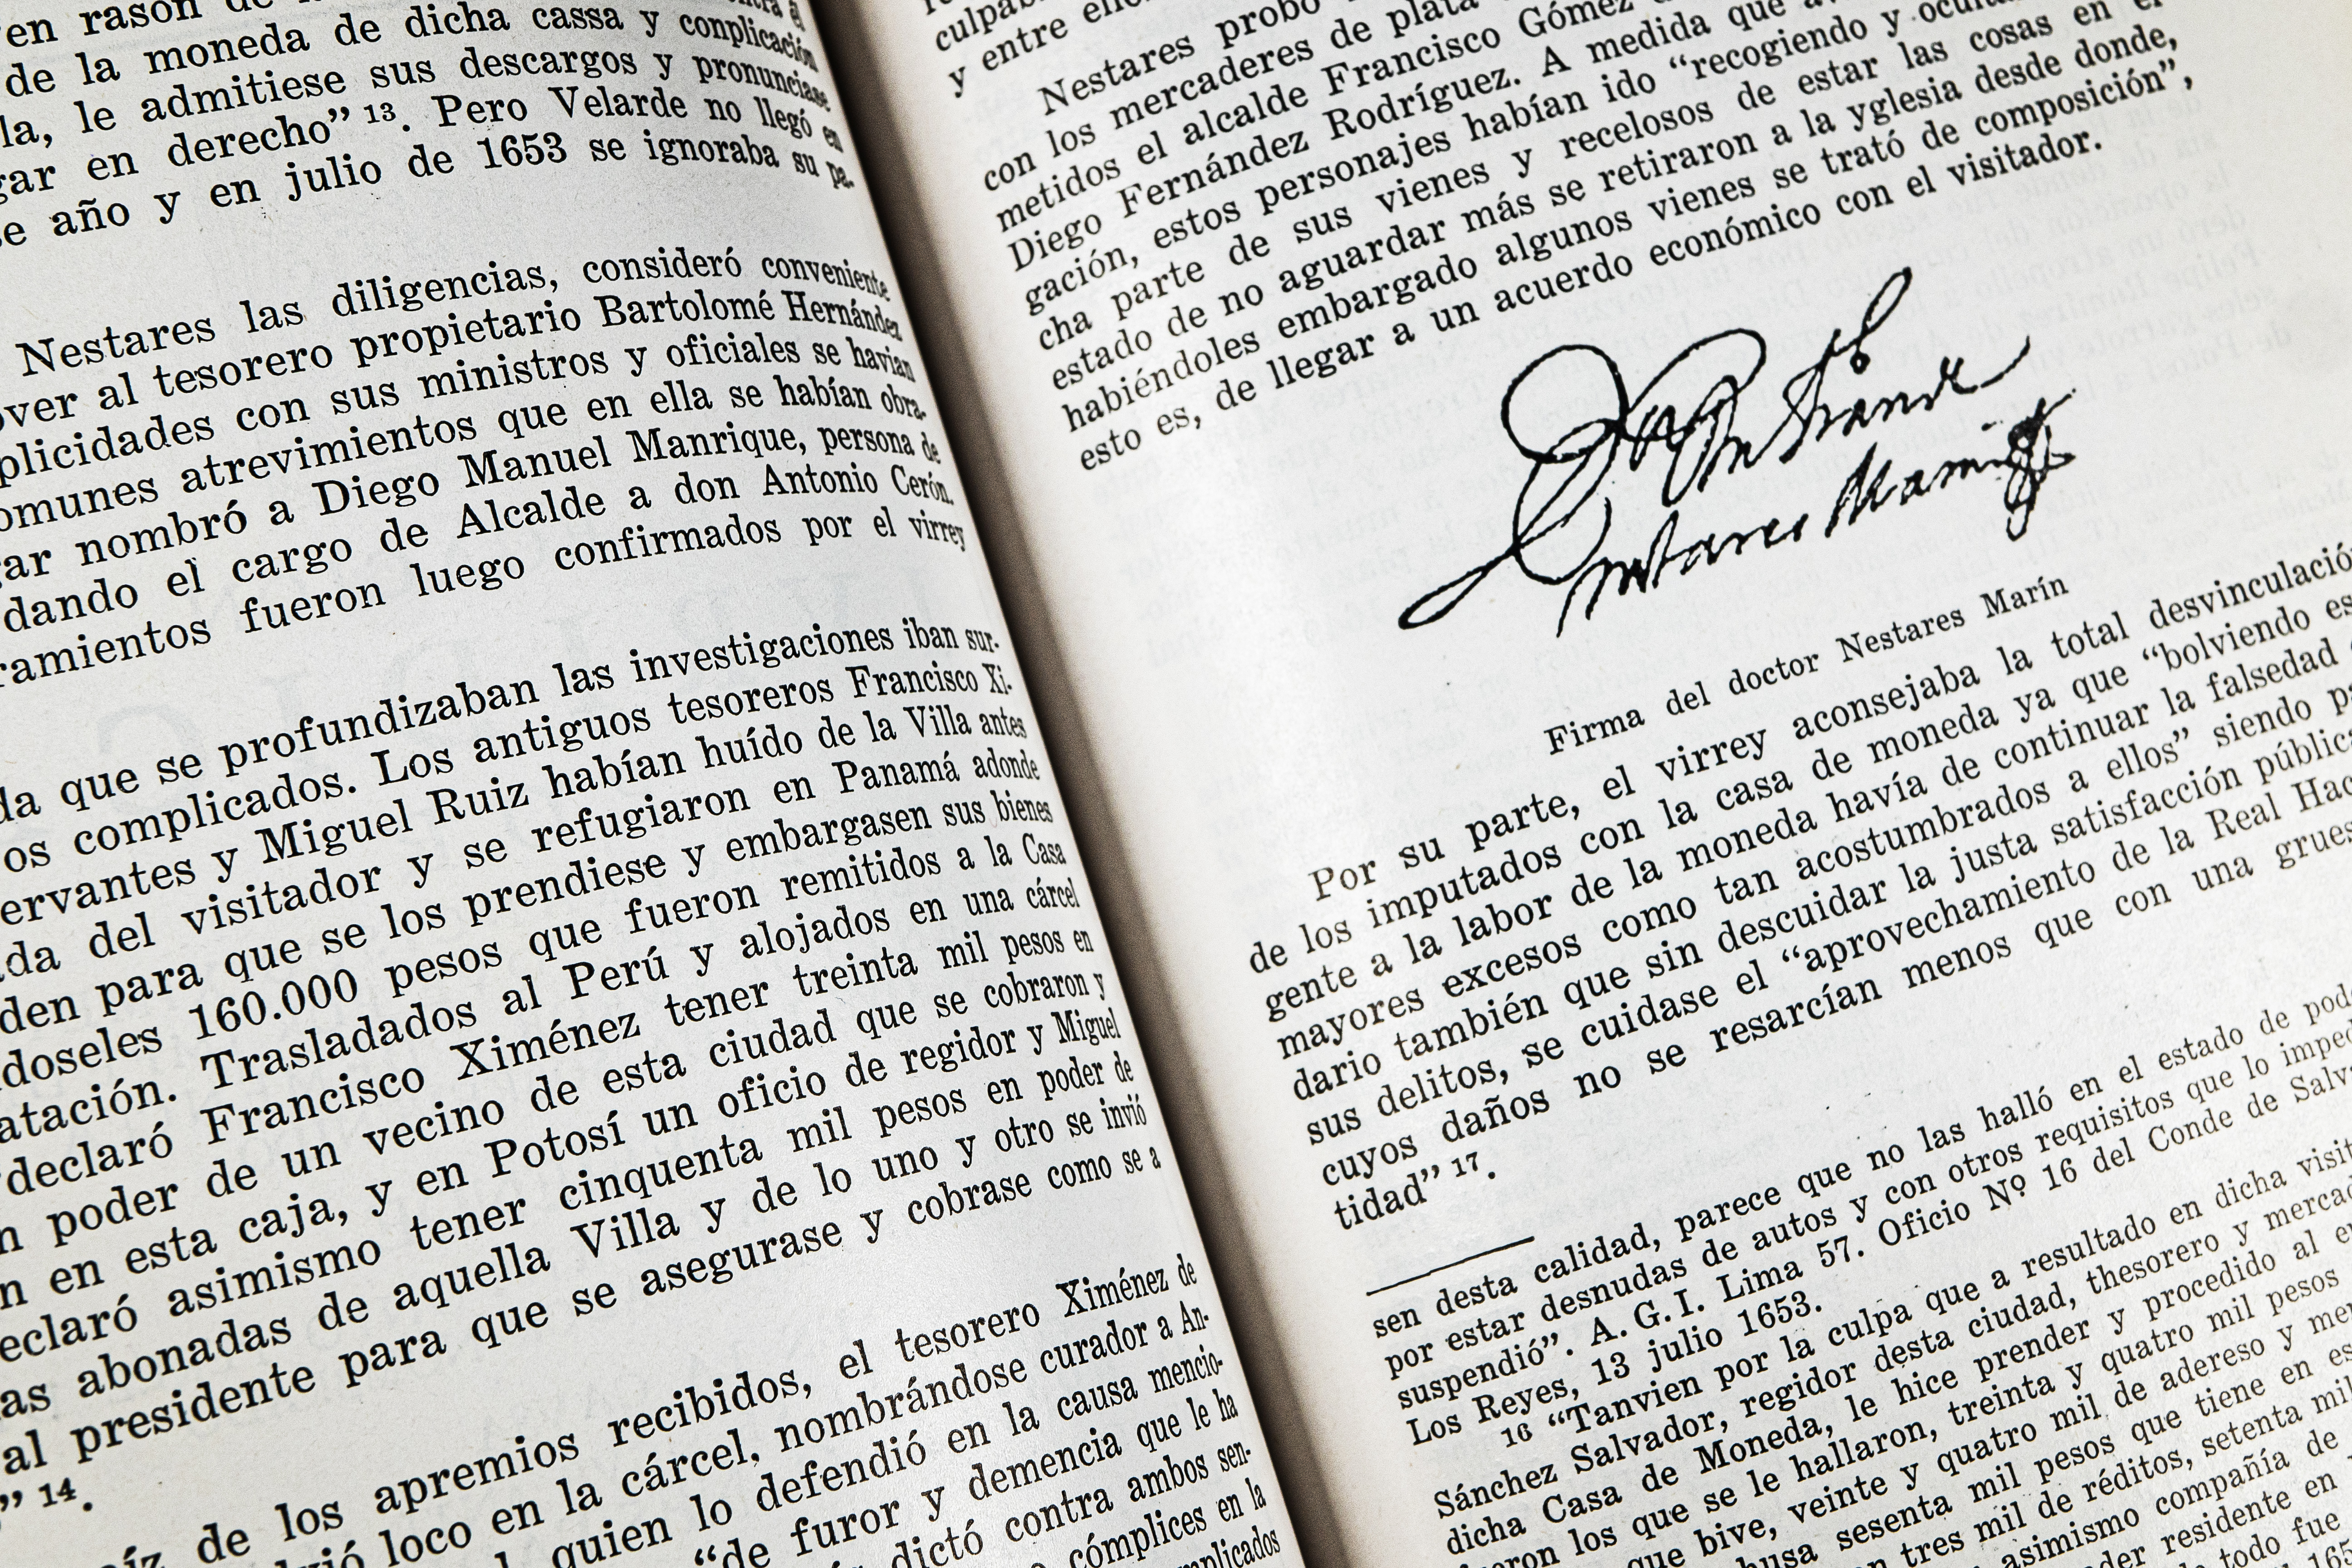 en rason de
de la moneda de dicha cassa y conplicación
la, le admitiese sus descargos y pronunciase
gar en derecho” 13. Pero Velarde no llegó en
e año y en julio de 1653 se ignoraba su pa-
Nestares las diligencias, consideró conveniente
over al tesorero propietario Bartolomé Hernández
plicidades con sus ministros y oficiales se havían
omunes atrevimientos que en ella se habían obra-
gar nombró a Diego Manuel Manrique, persona de
dando el cargo de Alcalde a don Antonio Cerón.
ramientos fueron luego confirmados por el virrey
da que se profundizaban las investigaciones iban sur-
os complicados. Los antiguos tesoreros Francisco Xi-
ervantes y Miguel Ruiz habían huído de la Villa antes
ada del visitador y se refugiaron en Panamá adonde
den para que se los prendiese y embargasen sus bienes
doseles 160.000 pesos que fueron remitidos a la Casa
atación. Trasladados al Perú y alojados en una cárcel
declaró Francisco Ximénez tener treinta mil pesos en
n poder de un vecino de esta ciudad que se cobraron y
n en esta caja, y en Potosí un oficio de regidor y Miguel
eclaró asimismo tener cinquenta mil pesos en poder de
as abonadas de aquella Villa y de lo uno y otro se invió
al presidente para que se asegurase y cobrase como se a
” 14.
íz de los apremios recibidos, el tesorero Ximénez de
vió loco en la cárcel, nombrándose curador a An-
quien lo defendió en la causa mencio-
“de furor y demencia que le ha
dictó contra ambos sen-
cómplices en la
mplicados
culpab
y entre
Nestares probó
con los mercaderes de plata
metidos el alcalde Francisco Gómez
Diego Fernández Rodríguez. A medida que
gación, estos personajes habían ido “recogiendo y
cha parte de sus vienes y recelosos de estar las cosas en
estado de no aguardar más se retiraron a la yglesia desde donde,
habiéndoles embargado algunos vienes se trató de composición”,
esto es, de llegar a un acuerdo económico con el visitador.
Firma del doctor Nestares Marín
Por su parte, el virrey aconsejaba la total desvinculació
de los imputados con la casa de moneda ya que “bolviendo es
gente a la labor de la moneda havía de continuar la falsedad
mayores excesos como tan acostumbrados a ellos” siendo pa
dario también que sin descuidar la justa satisfacción pública
sus delitos, se cuidase el “aprovechamiento de la Real Hac
cuyos daños no se resarcían menos que con una grues
tidad” 17.
sen desta calidad, parece que no las halló en el estado de pod
por estar desnudas de autos y con otros requisitos que lo imped
suspendió”. A. G. I. Lima 57. Oficio Nº 16 del Conde de Salva
Los Reyes, 13 julio 1653.
16 “Tanvien por la culpa que a resultado en dicha visit
Sánchez Salvador, regidor desta ciudad, thesorero y mercad
dicha Casa de Moneda, le hice prender y procedido al e
los que se le hallaron, treinta y quatro mil pesos
que bive, veinte y quatro mil de adereso y me
sesenta mil pesos que tiene en es
tres mil de réditos, setenta mil
asimismo compañía de
residente en
todo fue